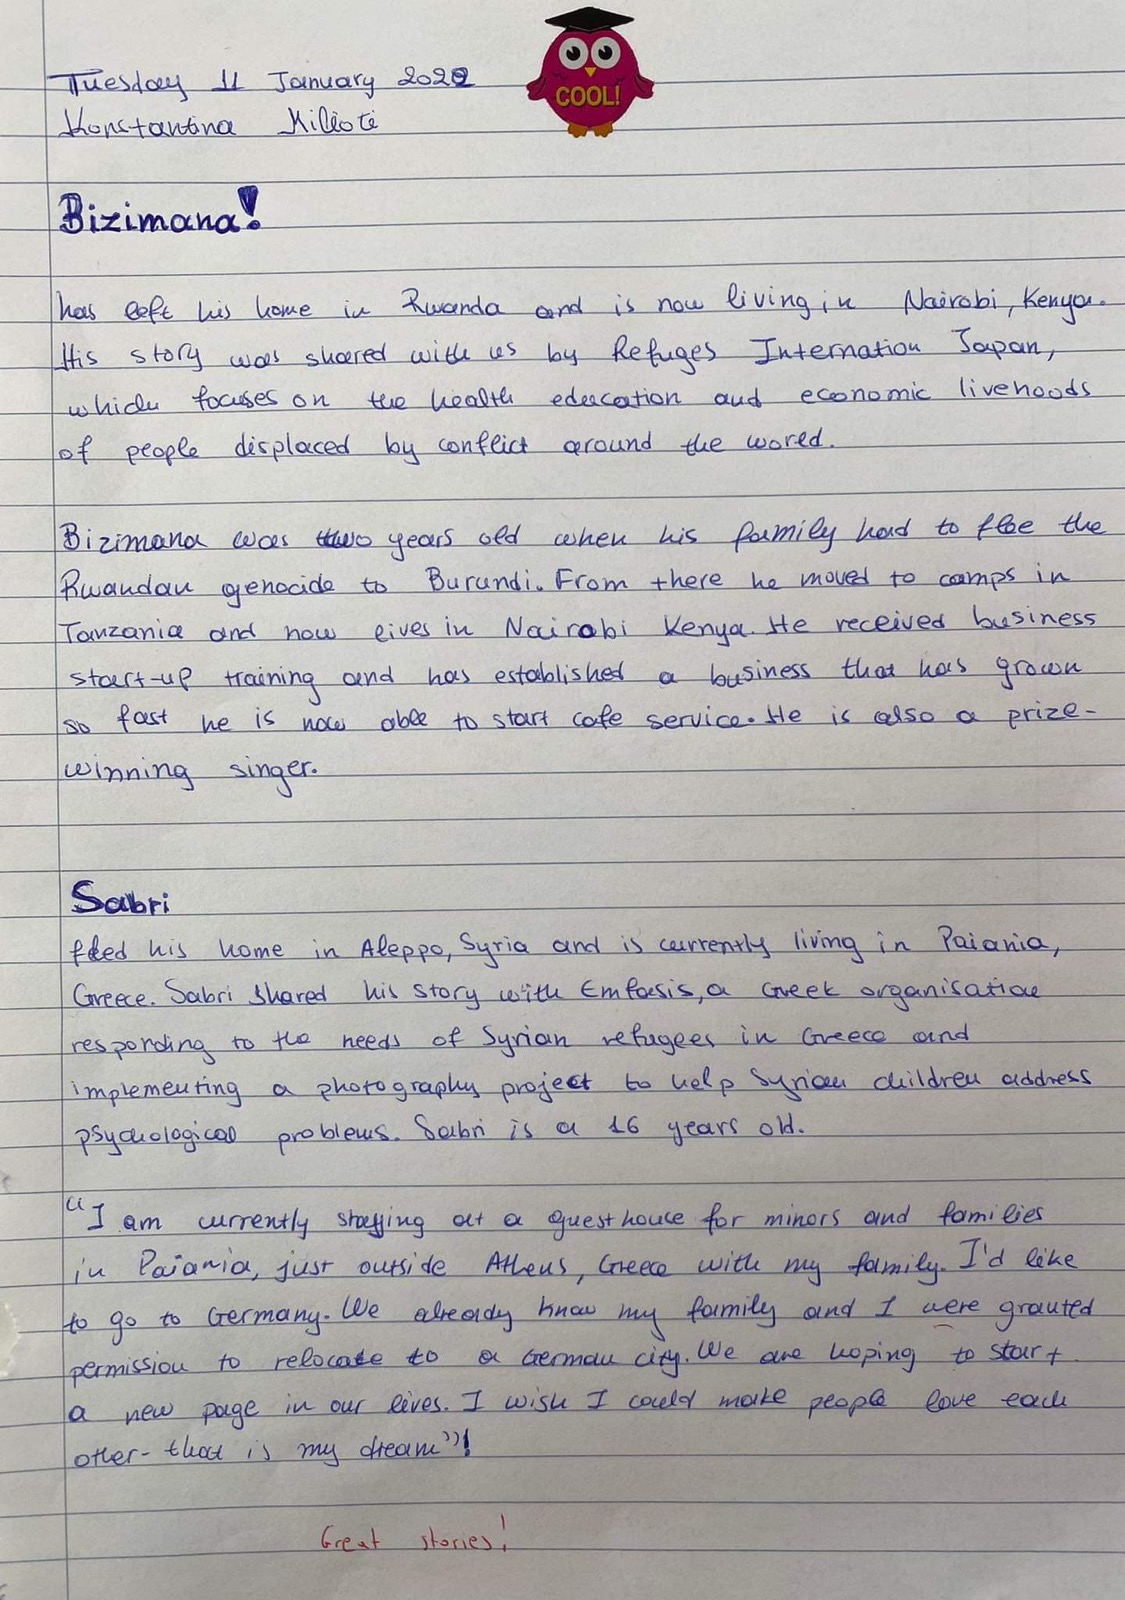 Tuesday 11 January 2022
COOL!
Konstantina
Bizimana!
has left his home in Rwanda and is now living in Nairobi, Kenya.
His story was shared with us by Refuges Internation Japan,
which focuses on the health education and economic livehoods
of people displaced by conflict around the world.
Bizimana was two years old when his family had to flee the
Rwandan genocide to Burundi. From there he moved to camps in
Tanzania and now lives in Nairobi Kenya. He received business
start-up training and has established a business that has grown
so fast he is now able to start cafe service. He is also a prize-
winning singer.
Sabri
fled his home in Aleppo, Syria and is currently living in Paiania,
Greece. Sabri shared his story with Emfasis, a Greek organisation
responding to the needs of Syrian refugees in Greece and
implementing a photography project to help Syrian children address
psychological problems. Sabri is a 16 years old.
"I am currently staying at a guesthouse for minors and families
in Paiania, just outside Athens, Greece with my family. I'd like
to go to Germany. We already know my family and I were granted
permission to relocate to a German city. We are hoping to start
a new page in our lives. I wish I could make people love each
other- that is my dream"!
Great stories!